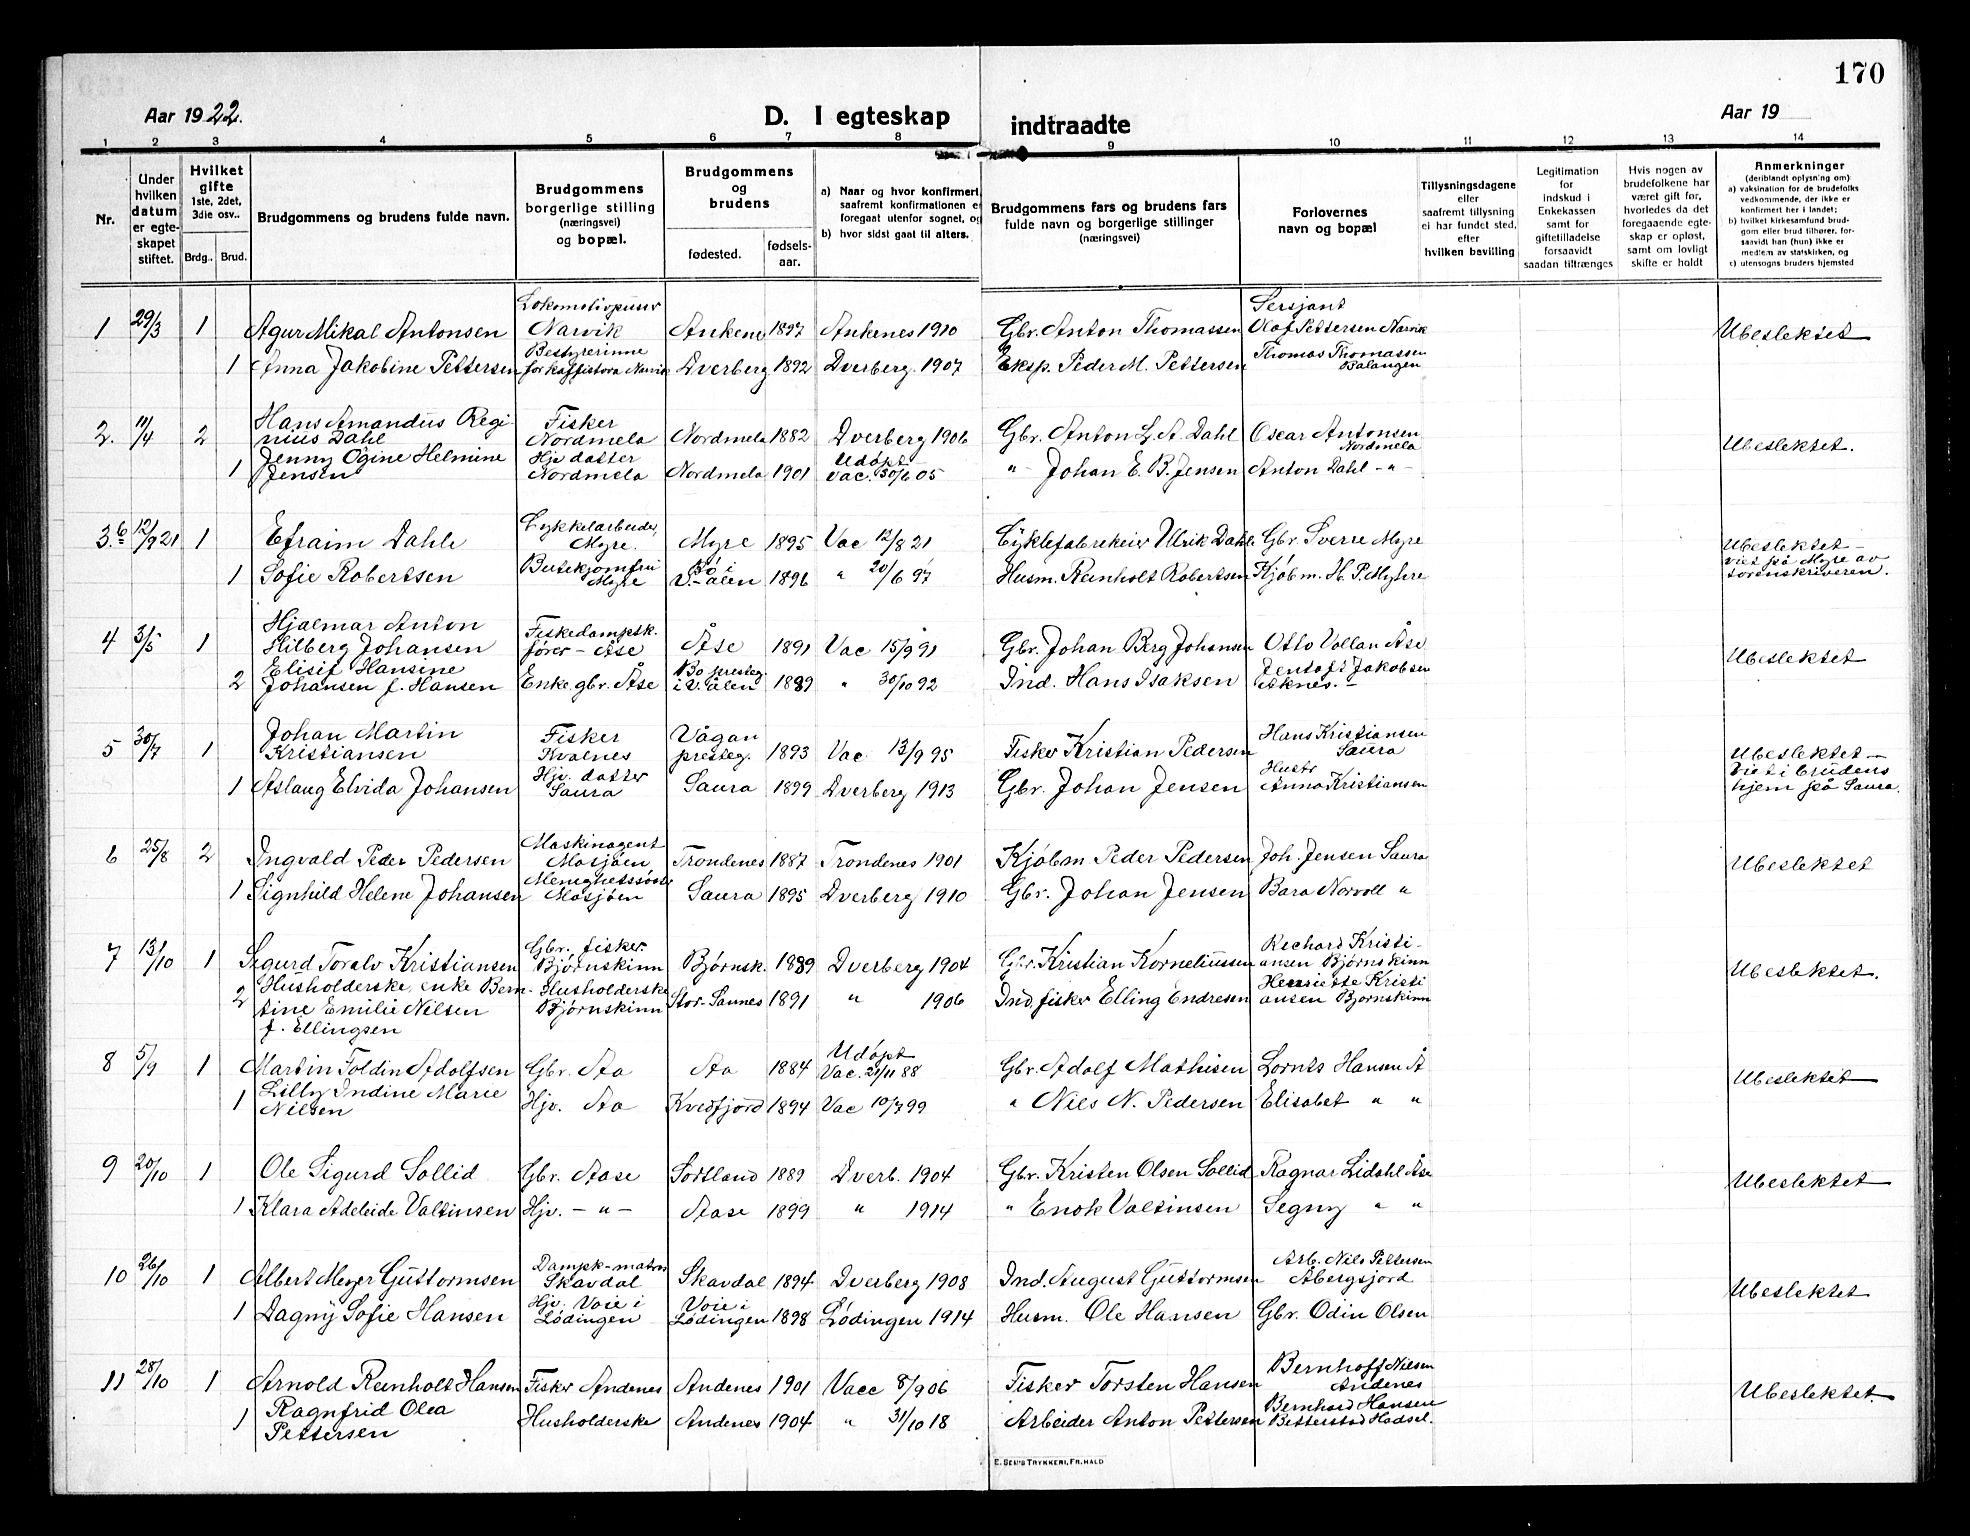 170
Aar 1922. D. I egteskap indtraadte Aar 19
1 2 3 4 5 6 7 8 9 10 11 12 13 14
Nr.
Under hvilken datum er egteskapet stiftet.
Hvilket gifte 1ste, 2det, 3die osv..
Brdg.. Brud.
Brudgommens og brudens fulde navn.
Brudgommens borgerlige stilling (næringsvei) og bopæl.
Brudgommens og brudens
fødested. fødselsaar.
a) Naar og hvor konfirmert, saafremt konfirmationen er foregaat utenfor sognet, og
b) hvor sidst gaat til alters.
Brudgommens fars og brudens fars fulde navn og borgerlige stillinger (næringsvei)
Forlovernes navn og bopæl
Tillysningsdagene eller saafremt tillysning ei har fundet sted, efter hvilken bevilling
Legitimation for indskud i Enkekassen samt for giftetilladelse forsaavidt saadan tiltrænges
Hvis nogen av brudefolkene har været gift før, hvorledes da det foregaaende egteskap er opløst, samt om lovligt skifte er holdt
Anmerkninger (deriblandt oplysning om)
a) vaksination for de brudefolks vedkommende, der ikke er konfirmert her i landet;
b) hvilket kirkesamfund brudgom eller brud tilhører, forsaavidt han (hun) ikke er medlem av statskirken, og
c) utensogns bruders hjemsted
1 29/3 1 Agur Mikal Antonsen Lokomotivpusser Narvik Ankene 1897 Ankenes 1910 Gbr. Anton Thomassen Sersjant Olaf Pettersen Narvik Ubeslektet
1 Anna Jakobine Pettersen Bestyrerinne for kaffistova Narvik Dverberg 1892 Dverberg. 1907 Eksp. Peder M. Pettersen Thomas Thomassen Balangen
2. 11/4 2 Hans Amandus Reginius Dahl Fisker Nordmela Nordmela 1882 Dverberg 1906 Gbr. Anton L. A. Dahl Oscar Antonsen Nordmela Ubeslektet.
1 Jenny Ogine Helmine Jensen Hjv datter Nordmela Nordmela 1901 Udøpt vac. 30/6 05 " Johan E. B. Jensen Anton Dahl - " -
3. 6 12/9 21 1 Efraim Dahle Cykkelarbeider, Myre. Myre 1895 Vac 12/8 21 Cyklefabrekeir Ulrik Dahl. Gbr. Sverre Myre Ubeslektet - viet på Myre av sorenskriveren.
1 Sofie Robertsen Butikjomfru Myre Bø i V.-ålen 1896 " 20/6 97 Husm. Reinholt Robertsen Kjøbm. H. P. Myhre
4 3/5 1 Hjalmar Anton Hilberg Johansen Fiskedampsk. fører - Åse Åse 1891 Vac 15/9 91 Gbr. Johan Berg Johansen Otto Vollan Åse Ubeslektet
2 Elisif Hansine Johansen f. Hansen Enke gbr. Åse Bø presteg i V. ålen 1889 " 30/10 92 Ind. Hans Isaksen Jentoft Jakobsen
5 30/7 1 Johan Martin Kristiansen Fisker Kvalnes Vågan presteg. 1893 Vac 13/9 95 Fisker Kristian Pedersen Hans Kristiansen Saura Ubeslektet - viet i brudens hjem på Saura.
1 Aslaug Elvida Johansen Hjv. datter Saura Saura 1899 Dverberg 1913 Gbr. Johan Jensen Hustr Anna Kristiansen
6 25/8 2 Ingvald Peder Pedersen Maskinagent Mosjøen Trondenes 1887 Trondenes 1901 Kjøbm Peder Pedersen Joh. Jensen Saura Ubeslektet
1 Signhild Helene Johansen Menighetssøster Mosjøen Saura 1895 Dverberg 1910 Gbr. Johan Jensen Bara Norvoll "
7 13/10 1 Sigurd Toralv Kristiansen Gbr. fisker. Bjørnskinn Bjørnsk. 1889 Dverberg 1904 Gbr. Kristian Korneliussen Rechard Kristiansen Bjørnskinn Ubeslektet.
2 Husholderske, enke Berntine Emilie Nilsen f. Ellingsen Husholderske Bjørnskinn Stor-Saunes 1891 " 1906 Ind, fisker Elling Endresen Henriette Kristiansen Bjørnskinn
8 5/9 1 Martin Foldin Adolfsen Gbr. Aa Aa 1884 Udøpt Vac. 21/11 88 Gbr. Adolf Mathisen Lornts Hansen Å Ubeslektet
1 Lilly Indine Marie Nilsen Hjv. Aa Kvedfjord 1894 Vac 10/7 99 " Nils N. Pedersen Elisabet " "
9 20/10 1 Ole Sigurd Sollid Gbr. Aase Sortland 1889 Dverb. 1904 Gbr. Kristen Olsen Sollid Ragnar Lidahl Åse Ubeslektet
1 Klara Adeleide Valtinsen Hjv. - " - Aase 1899 " 1914 " Enok Valtinsen Segny " "
10 26/10 1 Albert Meyer Guttormsen Dampk-matros Skavdal Skavdal 1894 Dverberg 1908 Ind. August Guttormsen Arb. Nils Pettersen Åbergsjord Ubeslektet
1 Dagny Sofie Hansen Hjv. Voie i Lødingen Voie i Lødingen 1898 Lødingen 1914 Husm. Ole Hansen Gbr. Odin Olsen
11 28/10 1 Arnold Reinholt Hansen Fisker Andenes Andenes 1901 Vacc 8/9 06 Fisker Torsten Hansen Bernhoff Nilsen Andenes Ubeslektet.
1 Ragnfrid Olea Pettersen Husholderske Andenes 1904 " 31/10 18 Arbeider Anton Pettersen Bernhard Hansen Hadsel.
E. SEM'S TRYKKERI, FR.HALD